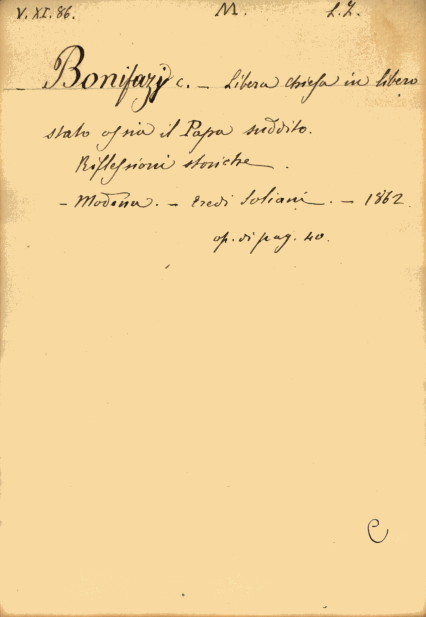 V. XI. 86. M. L. Z.
Bonifazj C. — Libera chiesa in libero
stato ossia il Papa suddito.
Riflessioni storiche.
— Modena. — Eredi Soliani. — 1862
op. di pag. 40.
C